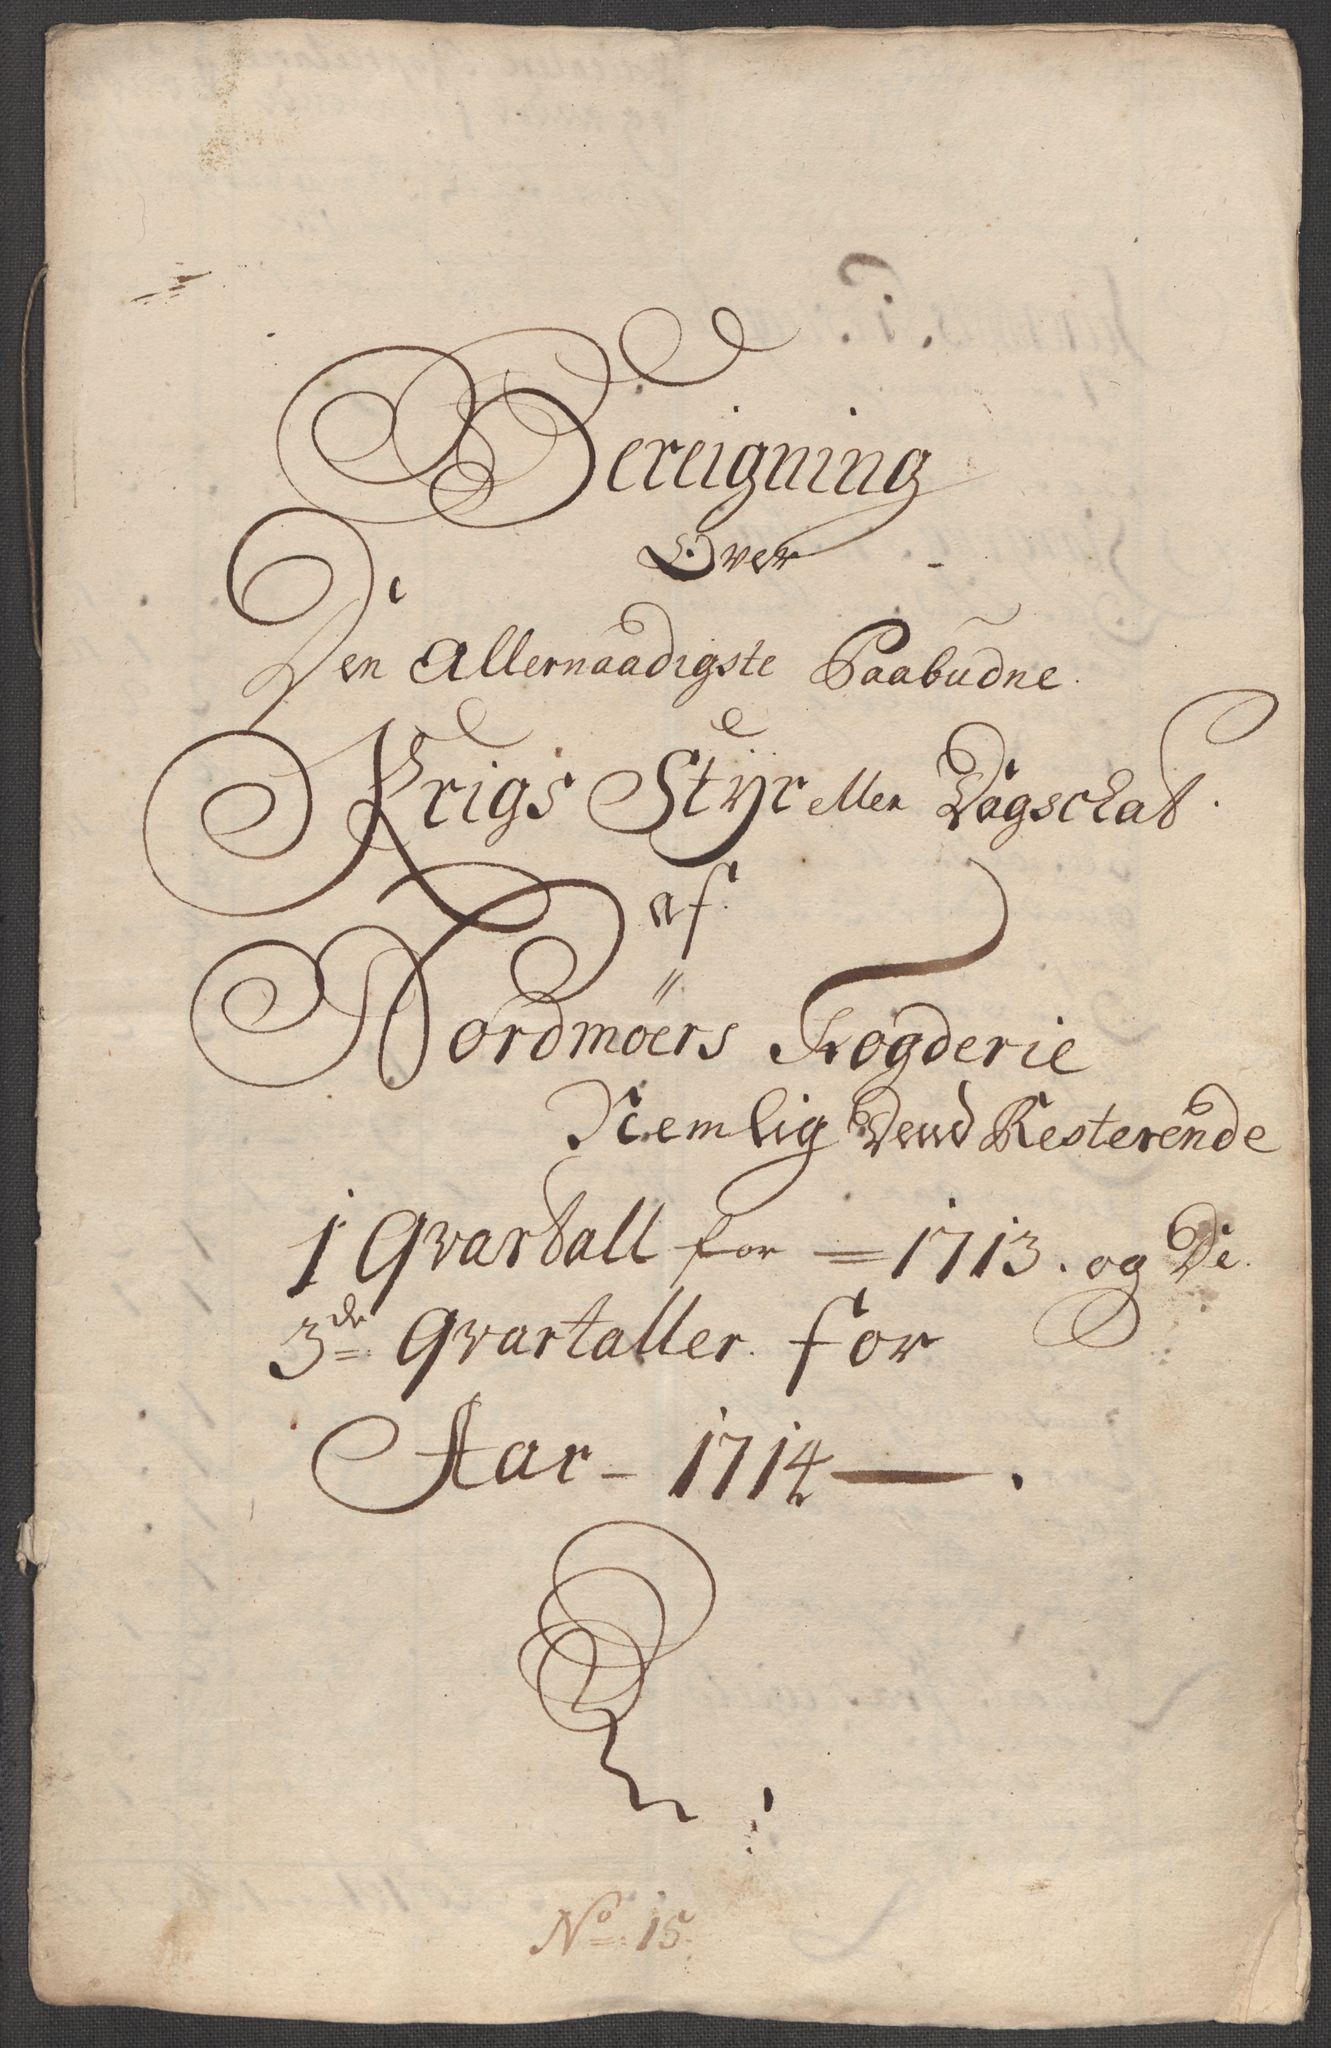 Bereigning
Over
Den Allernaadigste Paabudne
Krigs Styr eller Dagschat
af
Nordmöers Fogderie
Nemlig Dend Resterende
1 Qvartall for = 1713. og De
3de Qvartaller for
Aar - 1714 —.
No 15